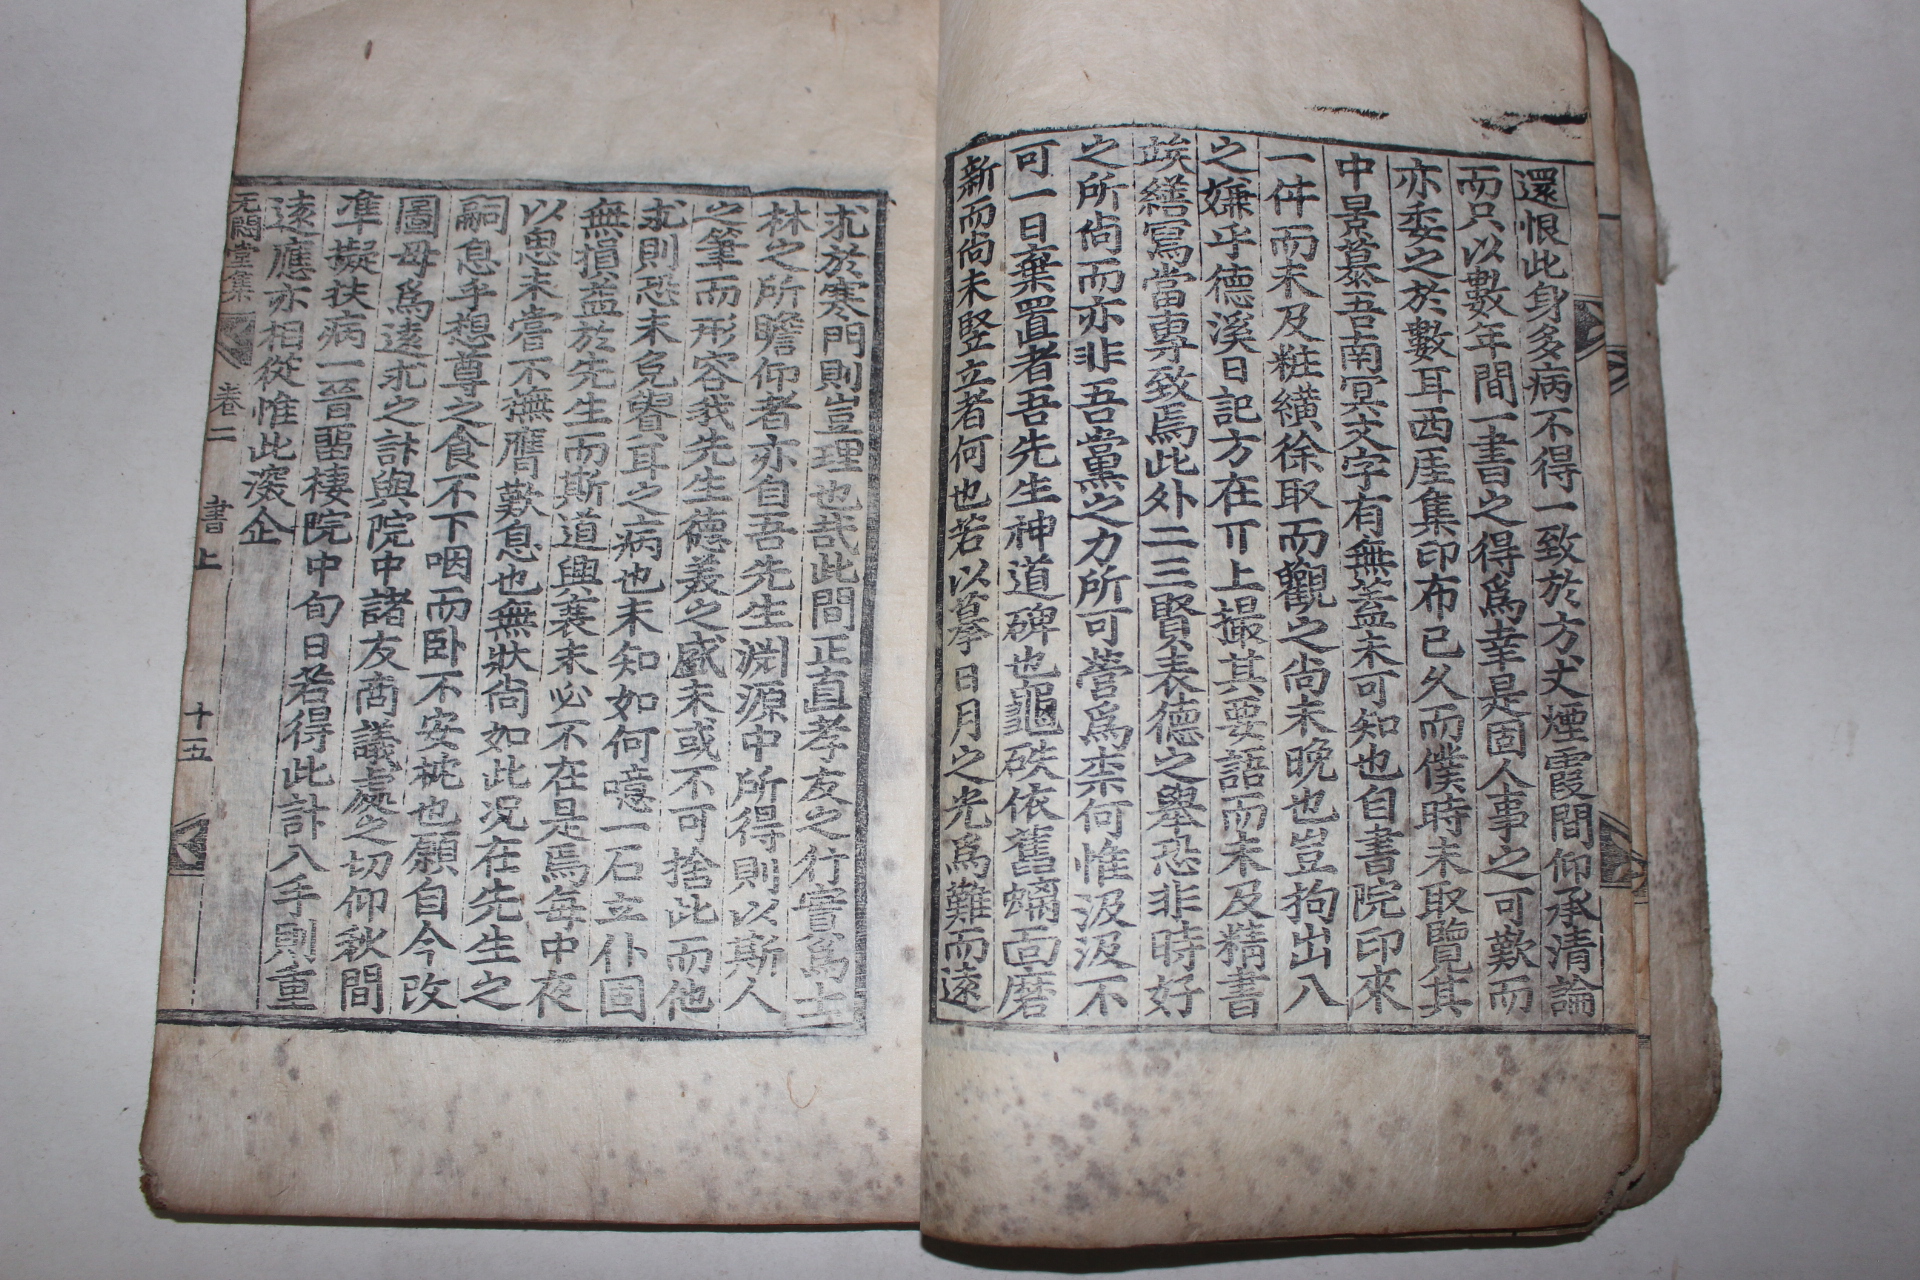 還恨此身多病不得一致於方丈煙霞間仰承清論
而只以數年間一書之得爲幸是固人事之可歎而
亦委之於數耳西厓集印布已久而僕時未取覽其
中景慕吾南冥文字有無盖未可知也自書院印來
一件而未及粧䌙徐取而觀之尚未晚也豈拘出入
之嫌乎德溪日記方在丌上撮其要語而未及精書
竢繕寫當專致焉此外二三賢表德之舉恐非時好
之所尚而亦非吾黨之力所可營爲柰何惟汲汲不
可一日棄置者吾先生神道碑也龜趺依舊螭面磨
新而尚未竪立者何也若以摹日月之光爲難而遠
求於寒門則豈理也哉此間正直孝友之行實爲士
林之所瞻仰者亦自吾先生淵源中所得則以斯人
之筆而形容我先生德義之盛未或不可捨此而他
求則恐未免貴耳之病也未知如何噫一石立仆固
無損益於先生而斯道興衰未必不在是焉每中夜
以思未嘗不撫膺歎息也無狀尚如此况在先生之
嗣息乎想尊之食不下咽而卧不安枕也願自今改
圖毋爲遠求之計與院中諸友商議處之切仰秋間
準擬扶病一晉留棲院中旬日若得此計入手則重
遠應亦相從惟此深企
无悶堂集
卷二
書上
十五